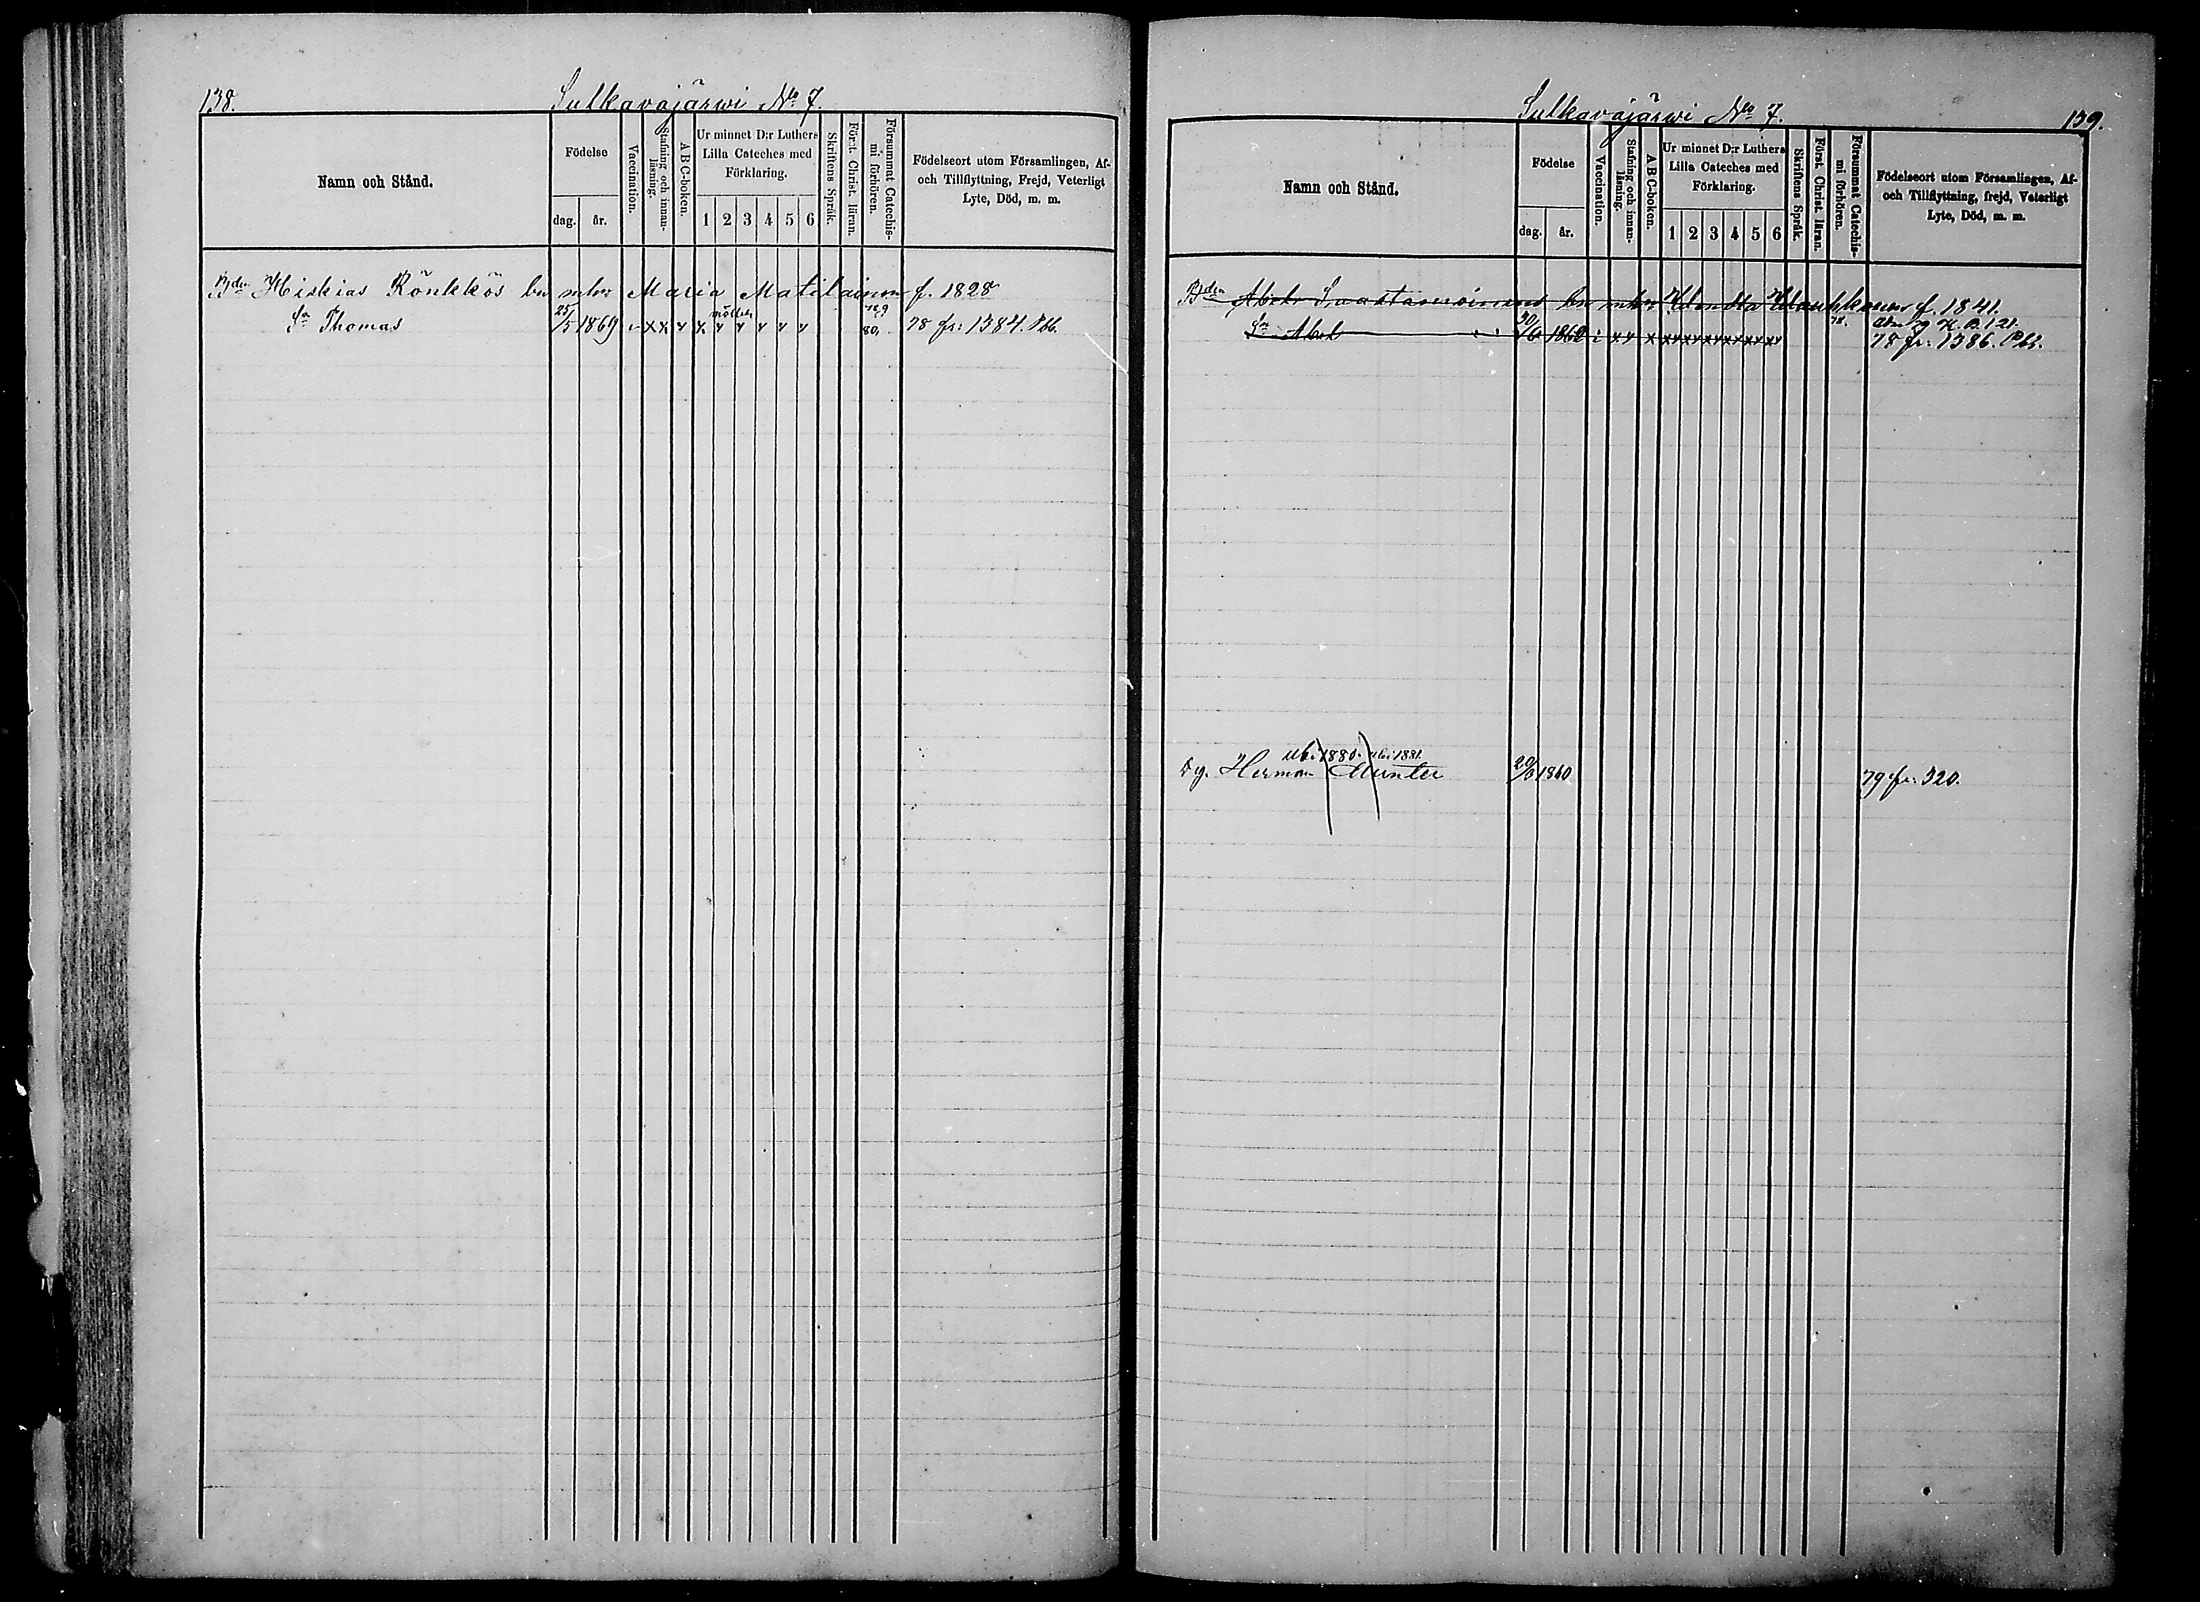 138.
Sulkavajärwi No 7.
Namn och Stånd.
Födelse
dag.
år.
Vaccination.
Stafning och innan-
läsning.
A B C-boken.
Ur minnet D:r Luthers
Lilla Cateches med
Förklaring.
1 2 3 4 5 6
Skriftens Språk.
För:t. Christ. läran.
Försummat Catechis-
mi förhören.
Födelseort utom Församlingen, Af-
och Tillflyttning, Frejd, Veterligt
Lyte, Död, m. m.
Bden Hiskias Rönkkös Maria Matilainen f. 1828
Sn Thomas 25/5 1869 80. 78 fr: 1384.
Sulkavajärwi No 7.
139.
Namn och Stånd.
Födelse
dag.
år.
Vaccination.
Stafning och innan-
läsning.
A B C-boken.
Ur minnet D:r Luthers
Lilla Cateches med
Förklaring.
1 2 3 4 5 6
Skriftens Språk.
Först. Christ. läran.
Försummat Catechis-
mi förhören.
Födelseort utom Församlingen, Af-
och Tillflyttning, frejd, Veterligt
Lyte, Död, m. m.
Bden Abel f. 1841.
78.
Sn Abel 78 fr. 1386.
1880. 1881.
Dg. Herman Munter 1860 79 fr. 320.